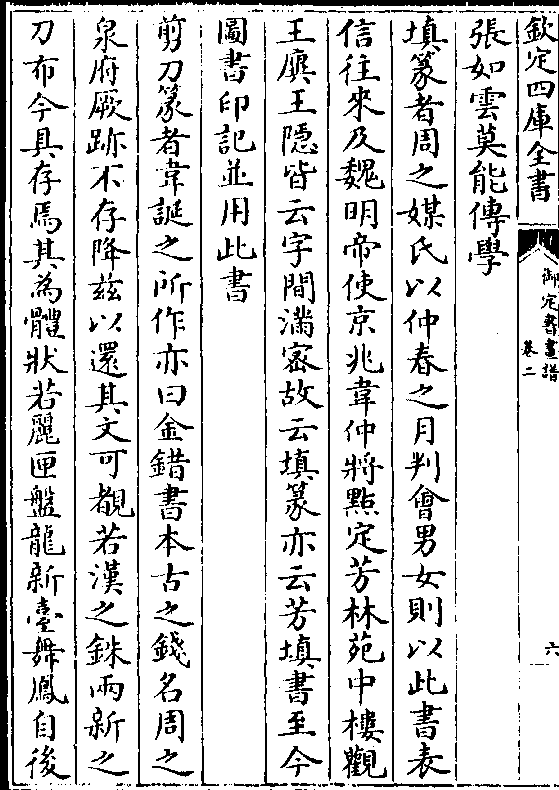 欽定四庫全書
御定書畫譜
卷二
六
張如雲莫能傳學
填篆者周之媒氏以仲春之月判會男女則以此書表
信往來及魏明帝使京兆韋仲將點定芳林苑中樓觀
王廙王隱皆云字間滿宻故云填篆亦云芳填書至今
圖書印記並用此書
剪刀篆者韋誕之所作亦曰金錯書本古之錢名周之
泉府厥跡不存降兹以還其文可覩若漢之銖兩新之
刀布今具存焉其為體狀若麗匣盤龍新臺舞鳳自後